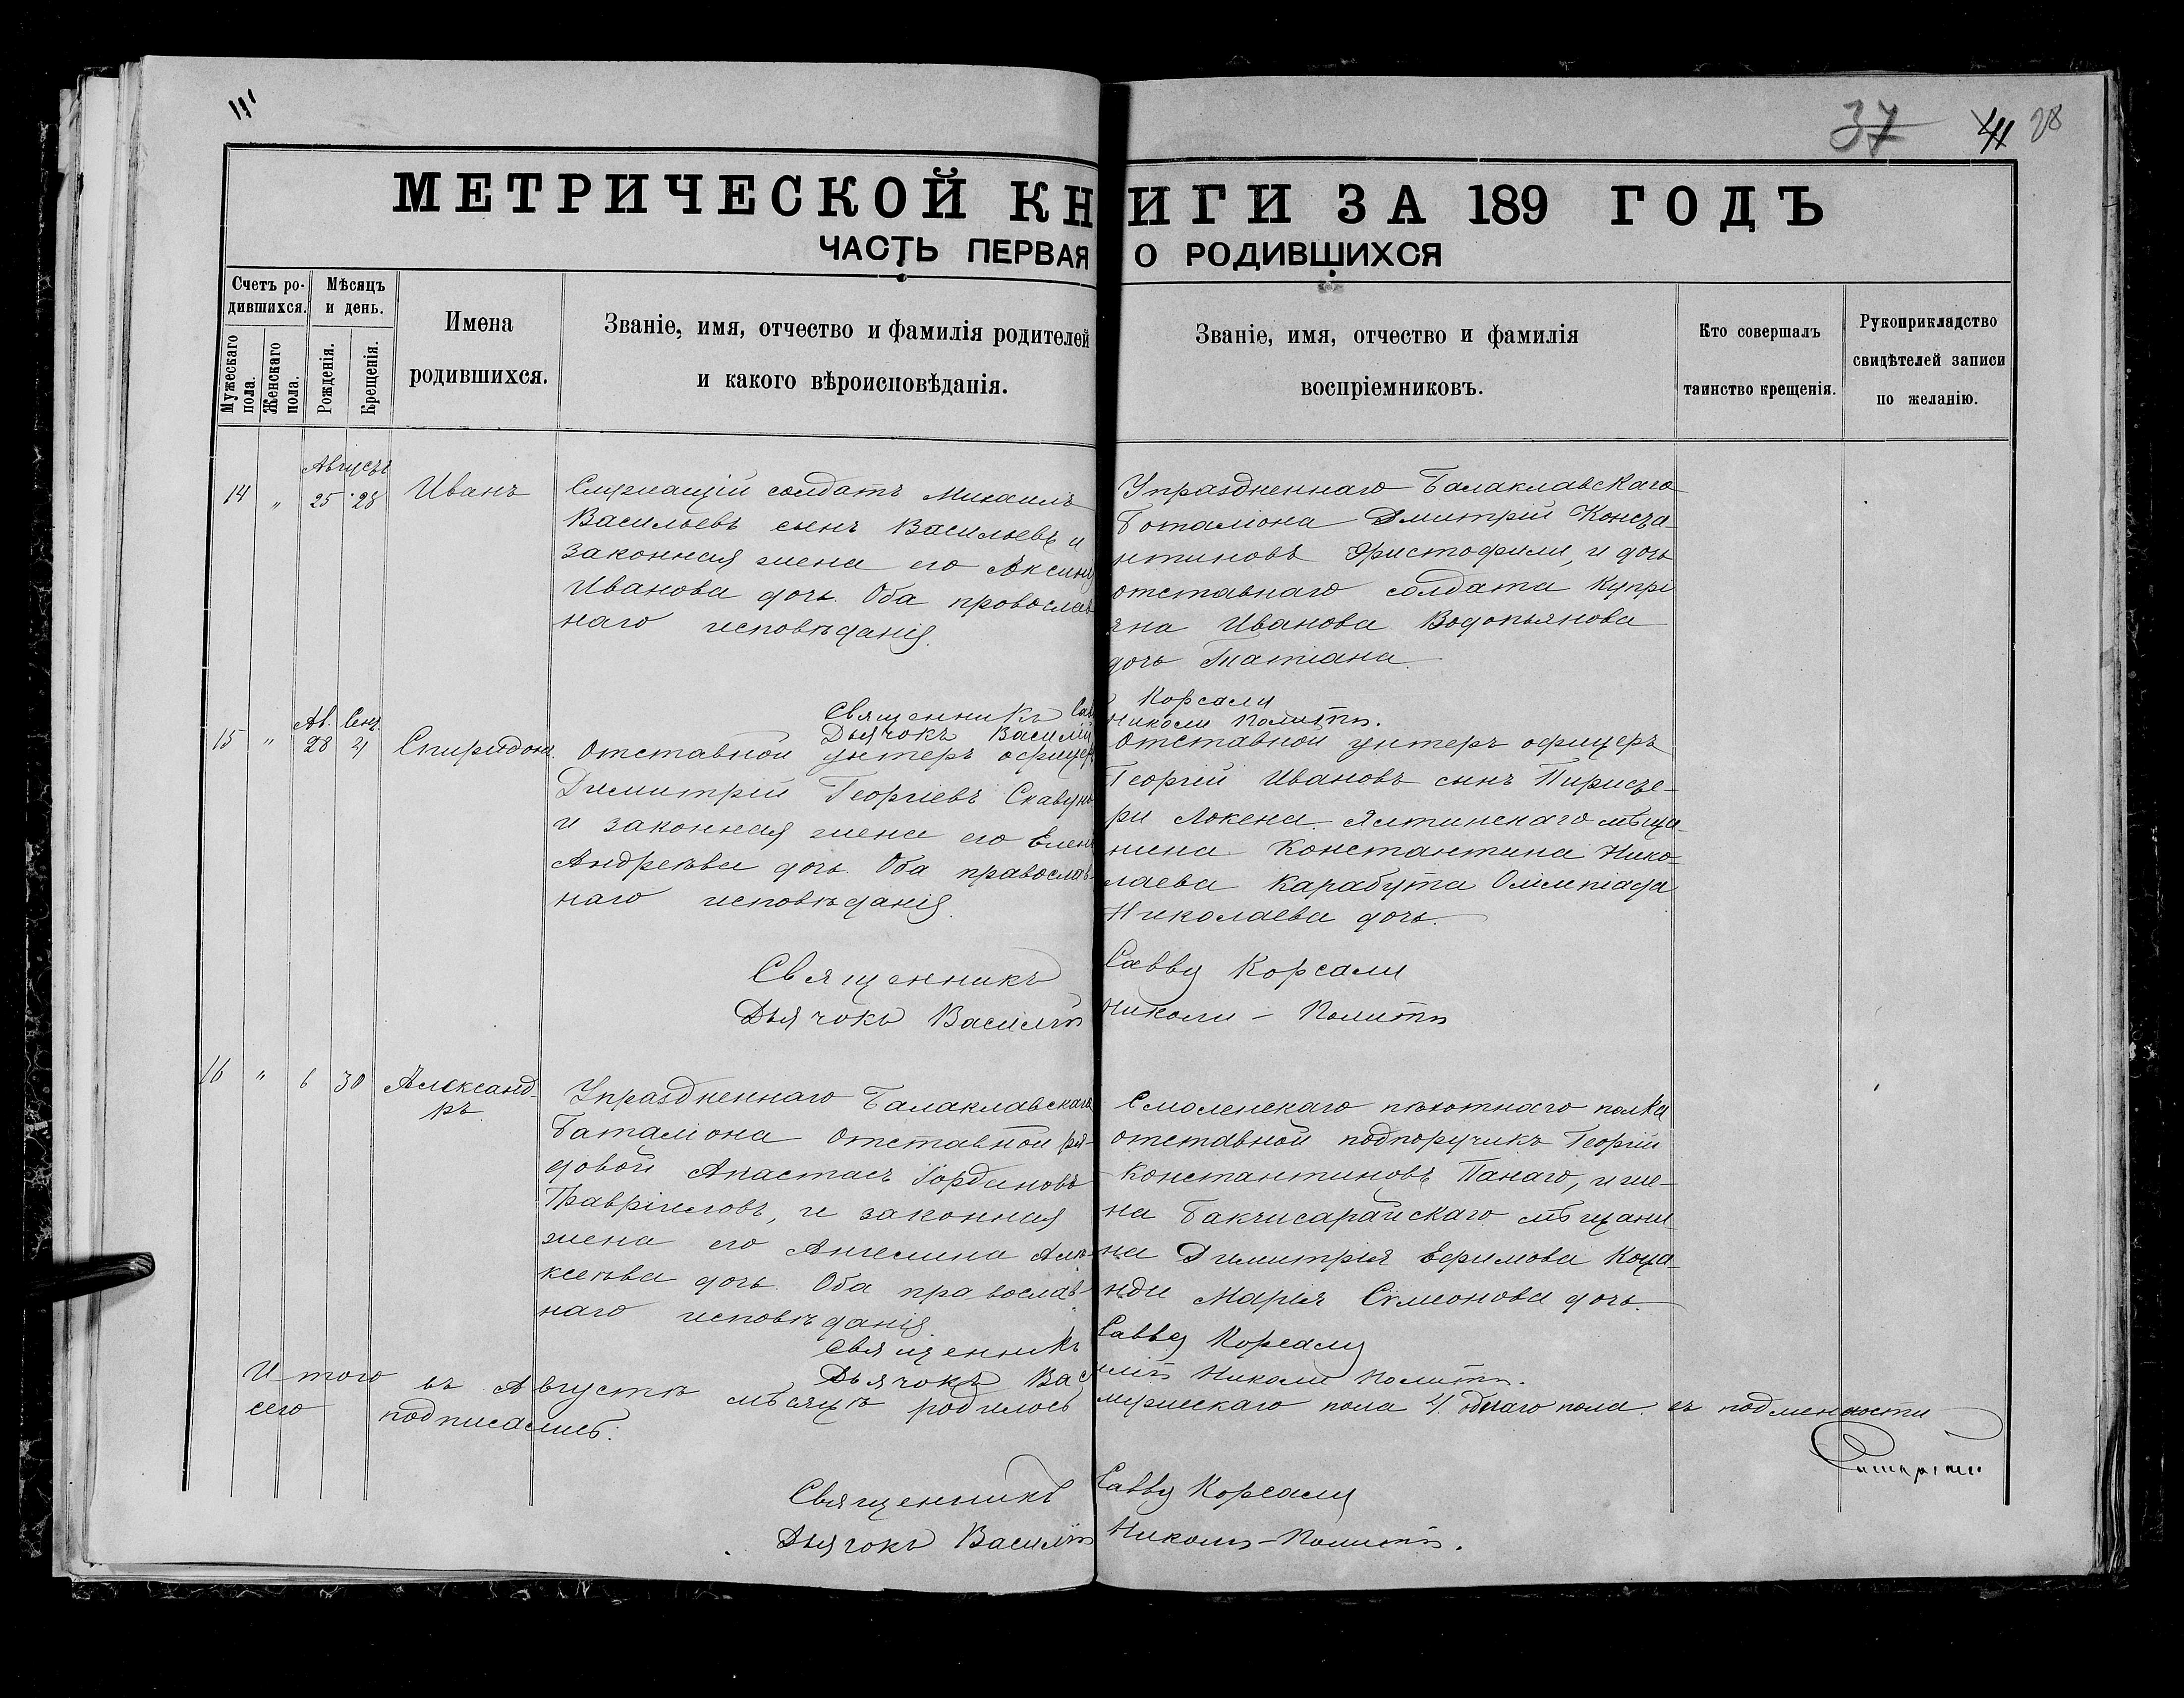 37 28
МЕТРИЧЕСКОЙ КНИГИ ЗА 189 ГОДЪ
ЧАСТЬ ПЕРВАЯ О РОДИВШИХСЯ
Счетъ родившихся.
Мужескаго пола.
Женскаго пола.
Мѣсяцъ и день.
Рожденія.
Крещенія.
Имена
родившихся.
Званіе, имя, отчество и фамилія родителей
и какого вѣроисповѣданія.
Званіе, имя, отчество и фамилія
воспріемниковъ.
Кто совершалъ
таинство крещенія.
Рукоприкладство
свидѣтелей записи
по желанію.
Августъ
14 " 25 28 Иванъ
Служащій солдатъ Михаилъ
Васильевъ сынъ Васильевъ и
законная жена его Аксинія
Иванова дочь. Оба провослав
наго исповѣданія.
Упраздненнаго Балаклавскаго
Боталіона Дмитрій Конста-
нтиновъ Христофили, и дочь
отставнаго солдата Купрі
яна Иванова Водопьянова
дочь Татіана.
Священникъ Савва Корсали
Дьячокъ Василій Николи Политъ.
Ав. Сен.
15 " 28 21 Спиридонъ.
Отставной унтеръ офицеръ
Димитрій Георгіевъ Скавунъ
и законная жена его Елена
Андреѣва дочь. Оба православ-
наго исповѣданія.
Отставной унтеръ офицеръ
Георгій Ивановъ сынъ Пиристе-
ри и жена Ялтинскаго мѣща-
нина Константина Нико-
лаева Карабута Олимпіада
Николаева дочь.
Священникъ Савва Корсали
Дьячокъ Василій Николи-Политъ
16 " 6 30 Александ-
ръ.
Упраздненнаго Балаклавскаго
Баталіона Отставной ря-
довой Анастасъ Іордановъ
Гавріиловъ, и законная
жена его Ангелина Але-
ксеѣва дочь. Оба православ-
наго исповѣданія.
Смоленскаго пѣхотнаго полка
отставной подпоручикъ Георгій
Константиновъ Панаго, и же-
на Бакчисарайскаго мѣщани
на Димитрія Ефимова Коца-
нди Марія Симеонова дочь.
Священникъ Савва Корсали
Дьячокъ Василій Николи Политъ.
Итого въ Августѣ мѣсяцѣ родилось мужескаго пола 4. обоего пола. въ
сего подписались:
Священникъ Савва Корсали
Дьячокъ Василій Николи-Политъ.